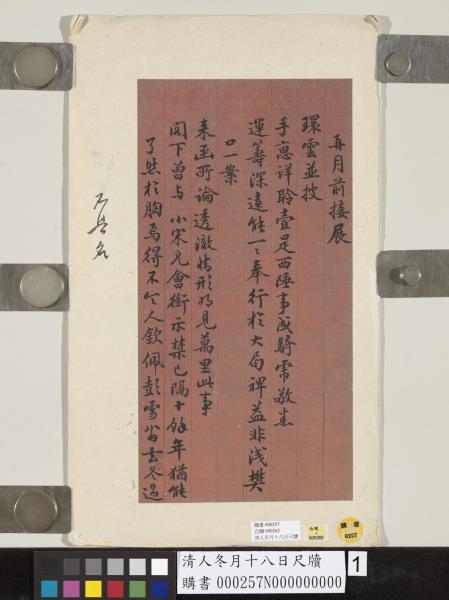 月前接展
環雲並披
手詳聆壹是西陲事成騎敬悉
運籌深遠能一一奉行於大局裨益非淺樊
口一案
來函所論透澈情形明見萬里此事
閣下曾与 小宋兄會銜示禁已隔十餘年猶能
了然於胸烏得不令人欽佩彭雪翁去冬過
不具名
購書 000257
台購 000262
清人冬月十八日尺牘
台購
000262
購書
0257
清人冬月十八日尺牘
購書 000257N000000000
1